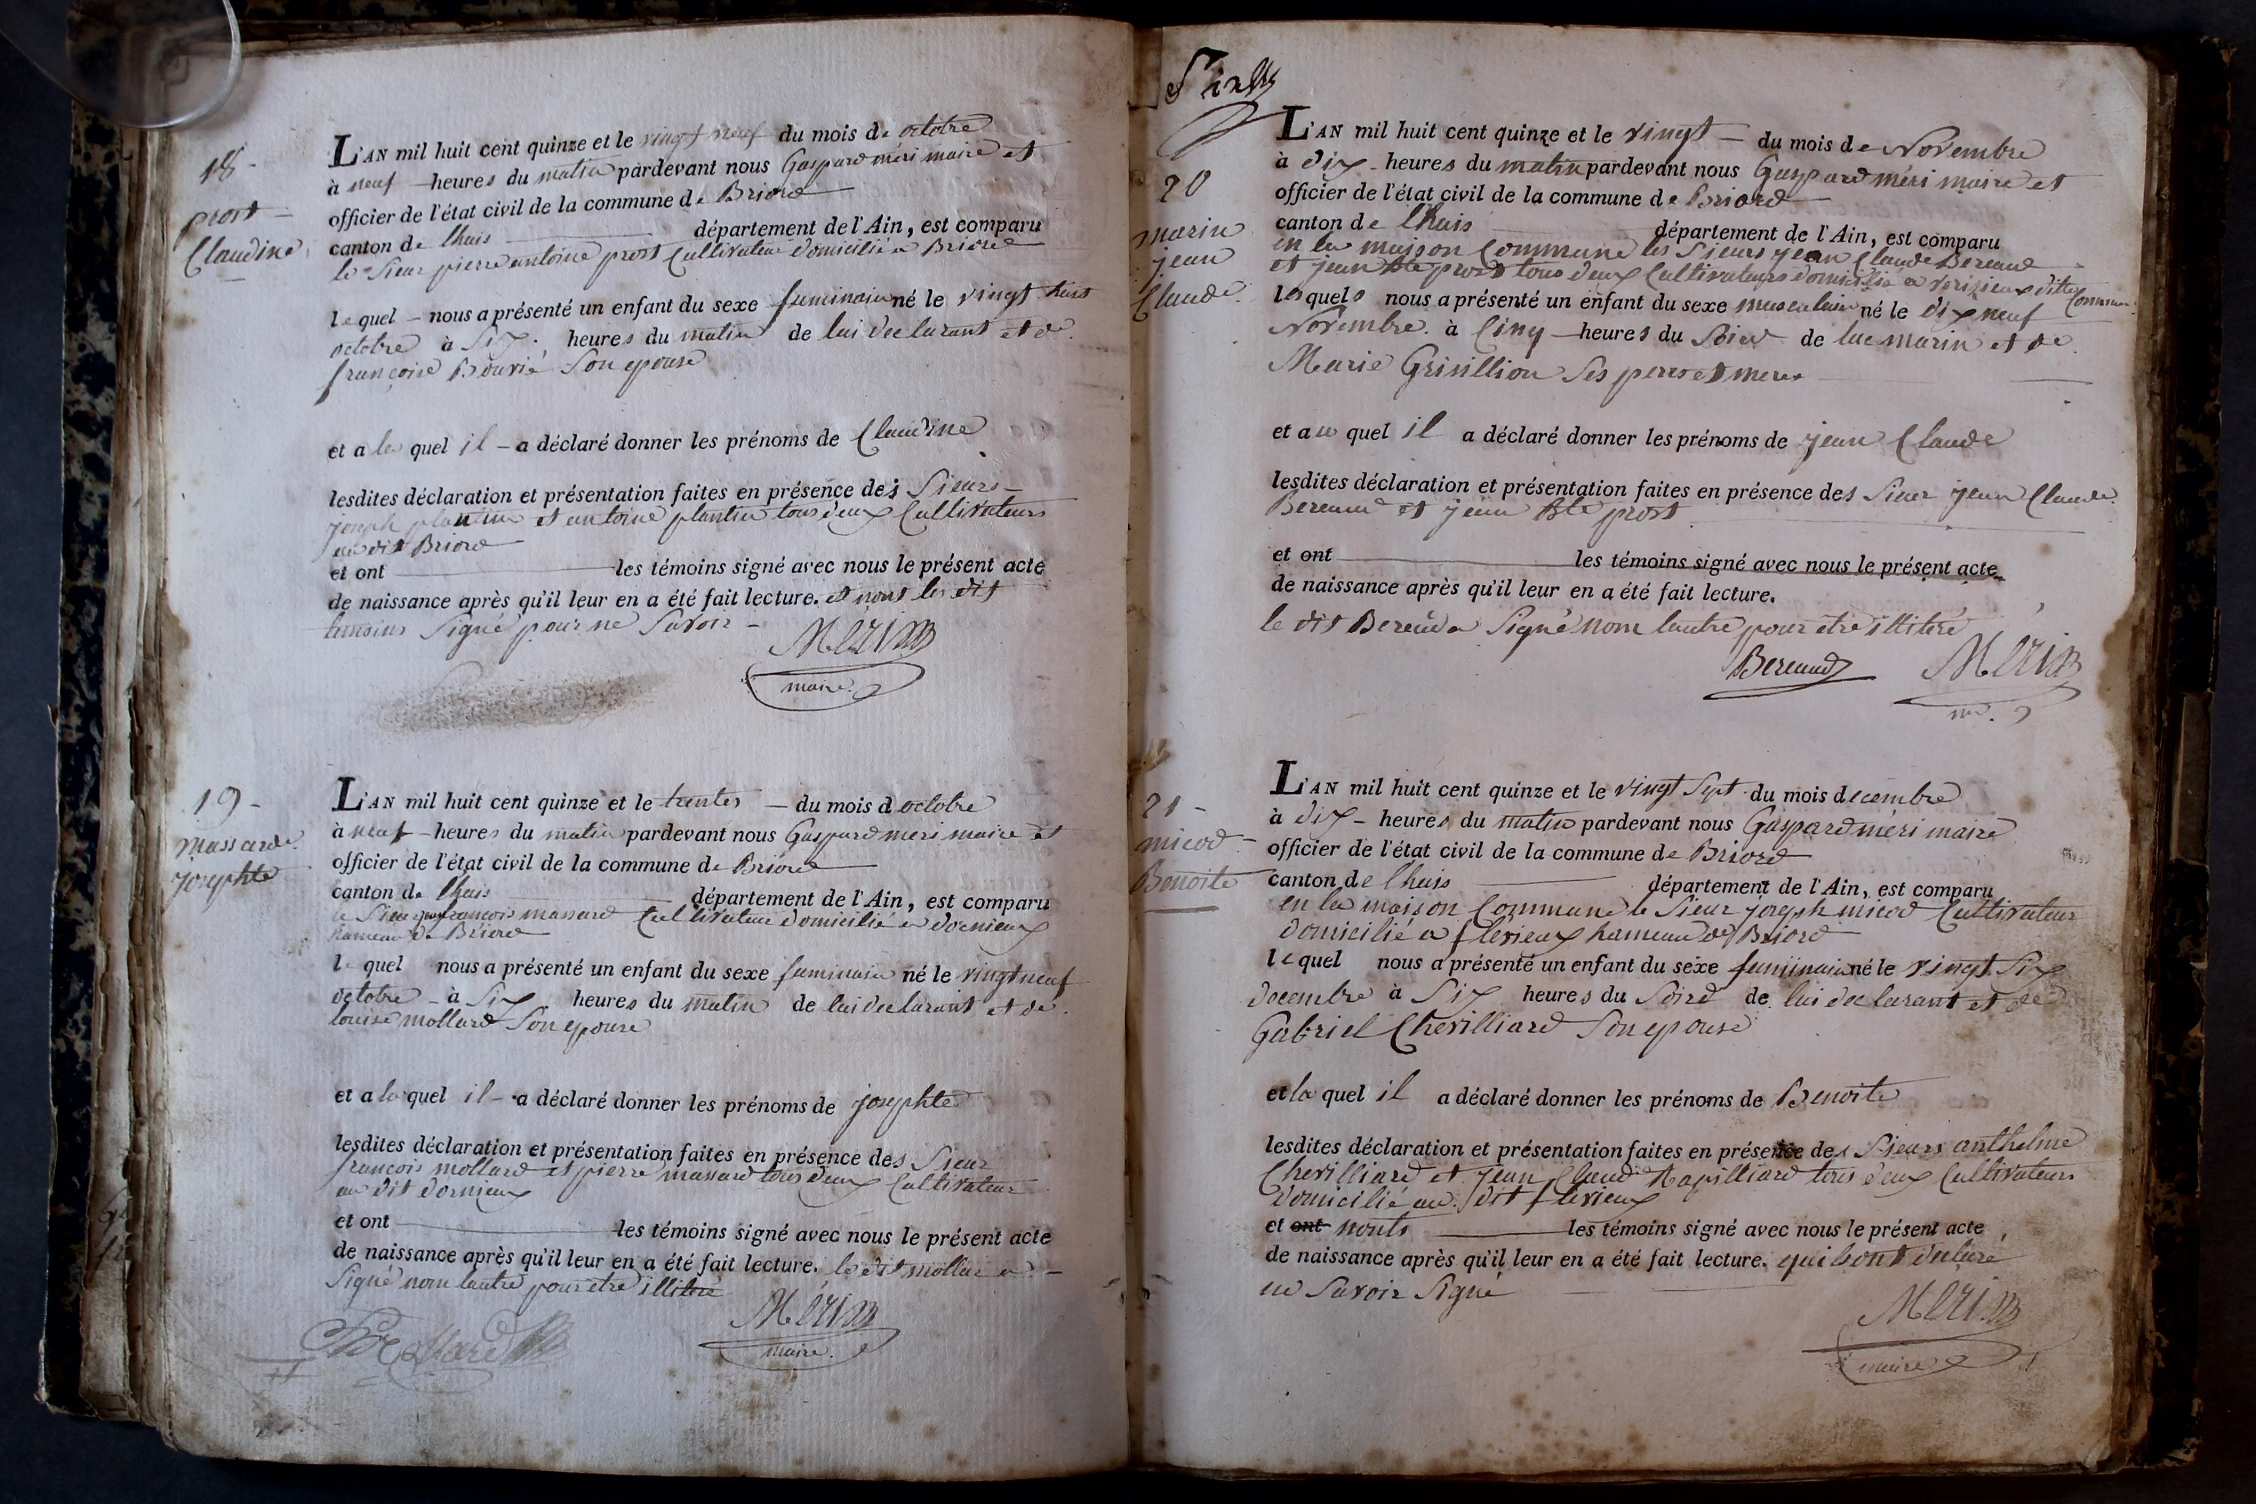 18 -
prost -
Claudine
L'AN mil huit cent quinze et le vingt neuf du mois de octobre
à neuf - heures du matin pardevant nous Gaspard méri maire et
officier de l'état civil de la commune de Briord
canton de lhuis département de l'Ain, est comparu
le Sieur pierre antoine prost Cultivateur domicilié a Briord
lequel - nous a présenté un enfant du sexe feminain né le vingt huit
octobre à Six heures du matin de lui declarant et de
françoise Bouvié Son epouse
et a la quel il - a déclaré donner les prénoms de Claudine
lesdites déclaration et présentation faites en présence des Sieurs -
joseph plantin et antoine plantin tous deux Cultivateurs
au dit Briord
et ont les témoins signé avec nous le présent acte
de naissance après qu'il leur en a été fait lecture. et nont les dit
temoins Signé pour ne Savoir -
Méri
maire
19 -
massard
josephte
L'AN mil huit cent quinze et le trentes - du mois d octobre
à neuf - heures du matin pardevant nous Gaspard meri maire et
officier de l'état civil de la commune de Briord
canton de lhuis département de l'Ain, est comparu
le Sieur francois massard Cultivateur domicilié a dornieux
hameau de Briord
le quel nous a présenté un enfant du sexe feminain né le vingt neuf
octobre - à Six heures du matin de lui declarant et de
louise mollard Son epouse
et a la quel il - a déclaré donner les prénoms de josephte
lesdites déclaration et présentation faites en présence des Sieur
francois mollard et pierre massard tous deux Cultivateur
au dit dornieux
et ont les témoins signé avec nous le présent acte
de naissance après qu'il leur en a été fait lecture. le dit mollar a -
Signé nom lautre pour etre illitéré
Méri
maire
20
marin
jean
Claude
L'AN mil huit cent quinze et le vingt - du mois de Novembre
à dix - heures du matin pardevant nous Gaspard méri maire et
officier de l'état civil de la commune de Briord
canton de lhuis département de l'Ain, est comparu
en la maison Commune les Sieurs jean Claude Bereaud
et jean Bte prost tous deux Cultivateurs domicilié a verizieux ditte Commune
lesquels nous a présenté un enfant du sexe masculain né le dix neuf
Novembre à Cinq - heures du Soird de luc marin et de
Marie Grisillion Ses peres et meres
et au quel il a déclaré donner les prénoms de jean Claude
lesdites déclaration et présentation faites en présence des Sieur jean Claude
Bereaud et jean Bte prost
et ont les témoins signé avec nous le présent acte
de naissance après qu'il leur en a été fait lecture.
le dit Bereud a Signé nom lautre pour etre illitéré
Bereaud Méri
21 -
micod -
Benoite
L'AN mil huit cent quinze et le vingt Sept du mois decembre
à dix - heures du matin pardevant nous Gaspard méri maire
officier de l'état civil de la commune de Briord
canton de lhuis département de l'Ain, est comparu
en la maison Commune le Sieur joseph micod Cultivateur
domicilié a flerieux hameau de Briord
lequel nous a présenté un enfant du sexe feminain né le vingt Six
decembre à Six heures du Soird de lui declarant et de
Gabriel Chevilliard Son epouse
et la quel il a déclaré donner les prénoms de Benoite
lesdites déclaration et présentation faites en présence des Sieurs anthelme
Chevilliard et jean Claude Rapilliard tous deux Cultivateurs
domicilié au dit flerieux
et ont nonts les témoins signé avec nous le présent acte
de naissance après qu'il leur en a été fait lecture. qui sont declaré
ne Savoir Signé
Méri
maire